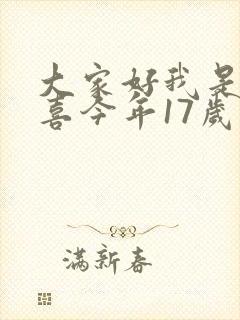 大家好我是
喜今年17歲
滿新春